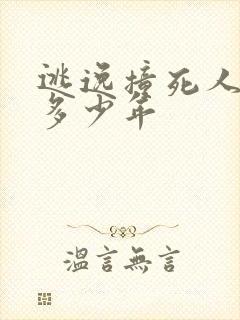 逃逸撞死人
多少年
溫言無言